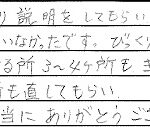 り説明をしてもらい
いなかったです。びっくり
る所3〜4ヶ所もき
も直してもらい
当にありがとうご